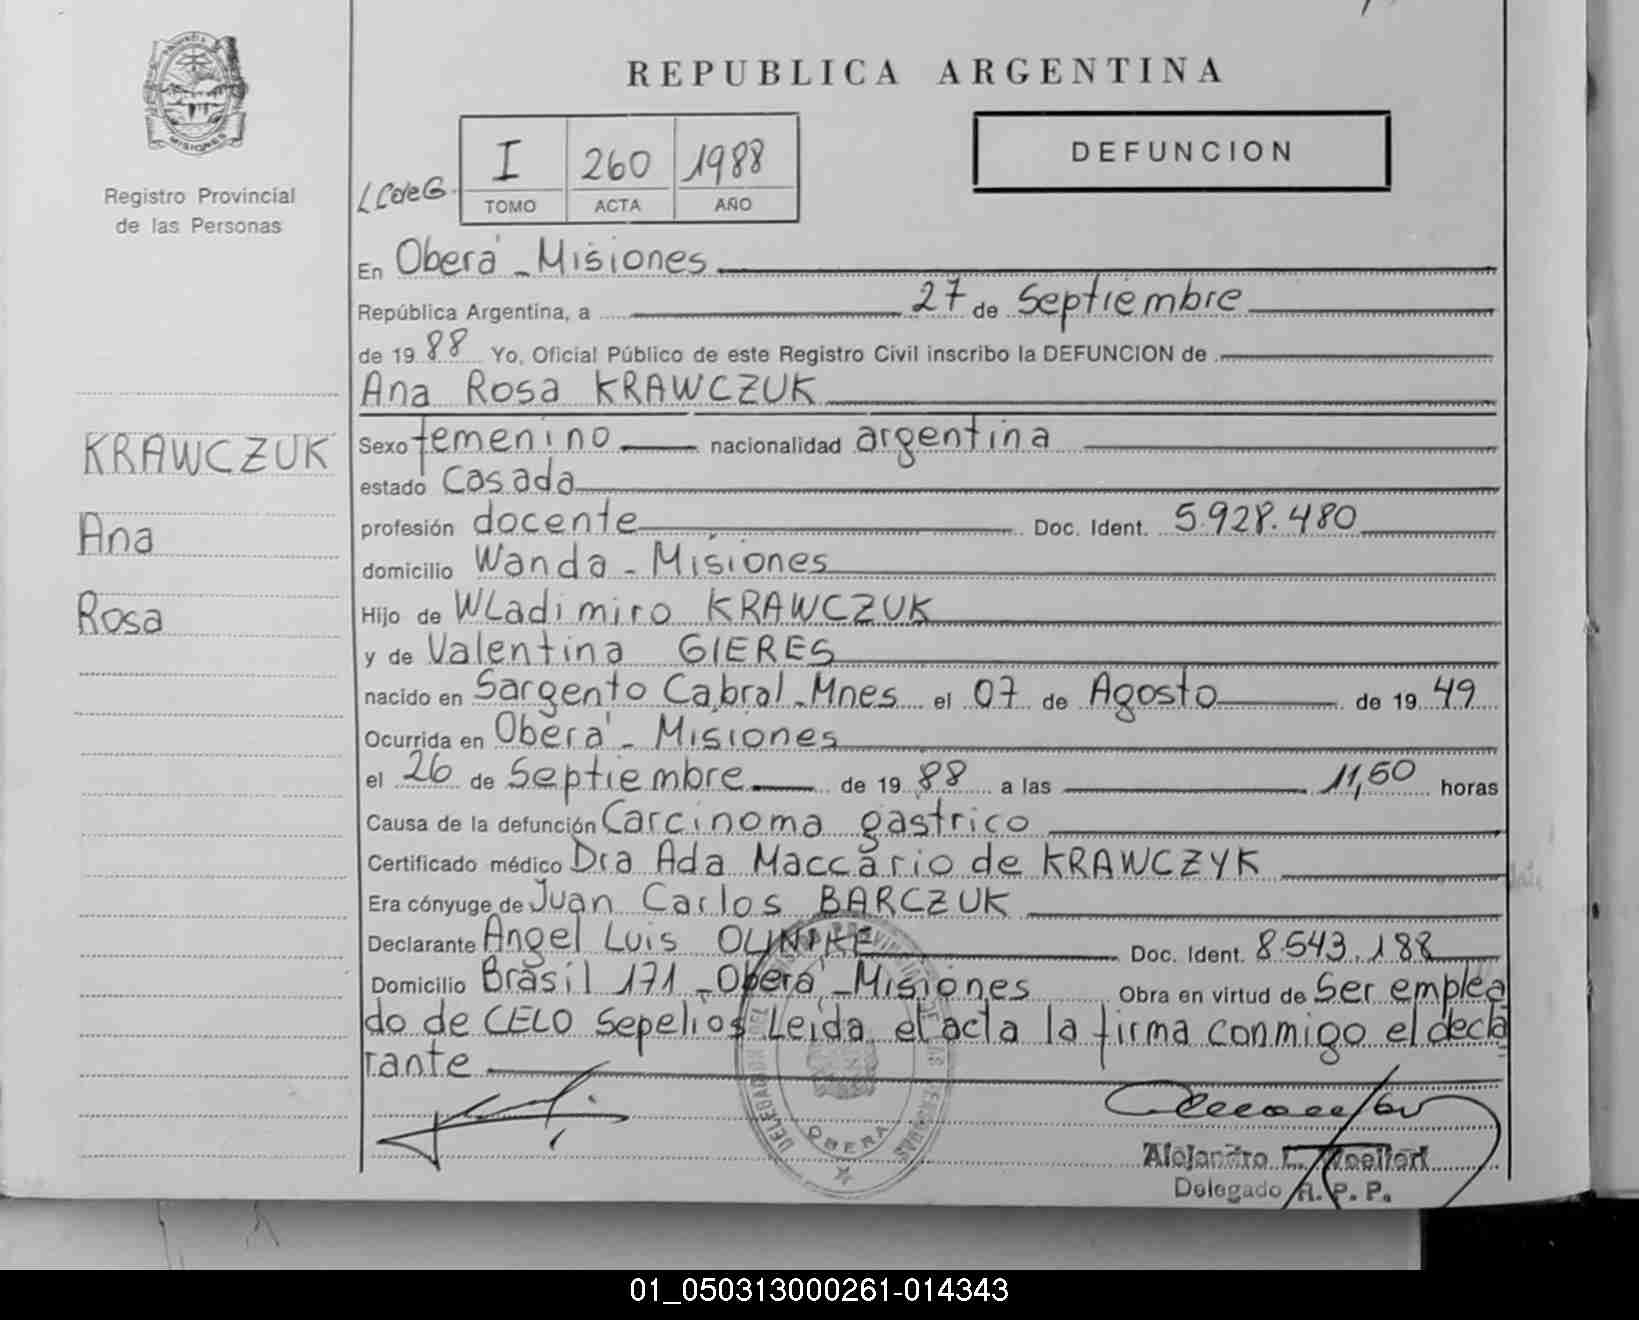 REPUBLICA ARGENTINA
MISIONES
Registro Provincial
de las Personas
I 260 1988
TOMO ACTA AÑO
DEFUNCION
En Oberá - Misiones
República Argentina, a 27 de Septiembre
de 1988 Yo, Oficial Público de este Registro Civil inscribo la DEFUNCION de
Ana Rosa KRAWCZUK
KRAWCZUK
Ana
Rosa
Sexo femenino nacionalidad argentina
estado Casada
profesión docente Doc. Ident. 5.928.480
domicilio Wanda - Misiones
Hijo de WLadimiro KRAWCZUK
y de Valentina GIERES
nacido en Sargento Cabral - Mnes el 07 de Agosto de 1949
Ocurrida en Oberá - Misiones
el 26 de Septiembre de 1988 a las 11,50 horas
Causa de la defunción Carcinoma gástrico
Certificado médico Dra Ada Maccario de KRAWCZYK
Era cónyuge de Juan Carlos BARCZUK
Declarante Angel Luis Doc. Ident. 8.543.188
Domicilio Brasil 171 - Oberá - Misiones Obra en virtud de Ser emplea
do de CELO Sepelios Leida el acta la firma conmigo el decla
rante
OBERA
Alejandro
Delegado R. P. P.
01_050313000261-014343